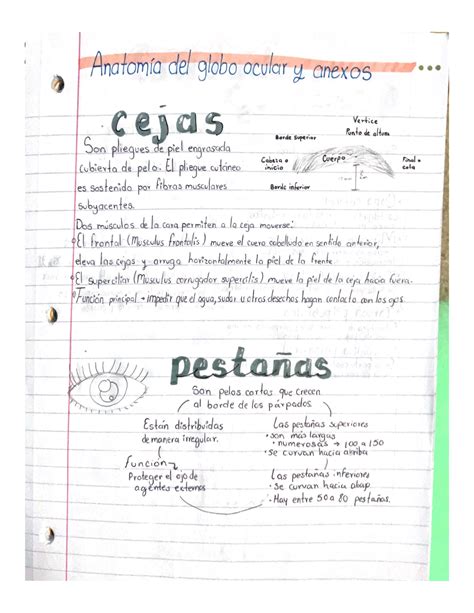 Anatomía del globo ocular y anexos
cejas
Son pliegues de piel engrosada
cubierta de pelo. El pliegue cutáneo
es sostenida por fibras musculares
subyacentes.
Vertice
Punto de altura
Borde superior
Cabeza o
inicio
Cuerpo
Final o
cola
Borde inferior
Dos músculos de la cara permiten a la ceja moverse:
El frontal (Musculus frontalis) mueve el cuero cabelludo en sentido anterior,
eleva las cejas y arruga horizontalmente la piel de la frente.
El superciliar (Musculus corrugador supercilis) mueve la piel de la ceja hacia fuera.
Función principal → impedir que el agua, sudor u otros desechos hagan contacto con los ojos.
pestañas
Son pelos cortos que crecen
al borde de los párpados
Están distribuidas
de manera irregular.
Función
Proteger el ojo de
agentes externos
Las pestañas superiores
• son más largas
• numerosas → 100 a 150
• Se curvan hacia arriba
Las pestañas inferiores
• Se curvan hacia abajo.
• Hay entre 50 a 80 pestañas.